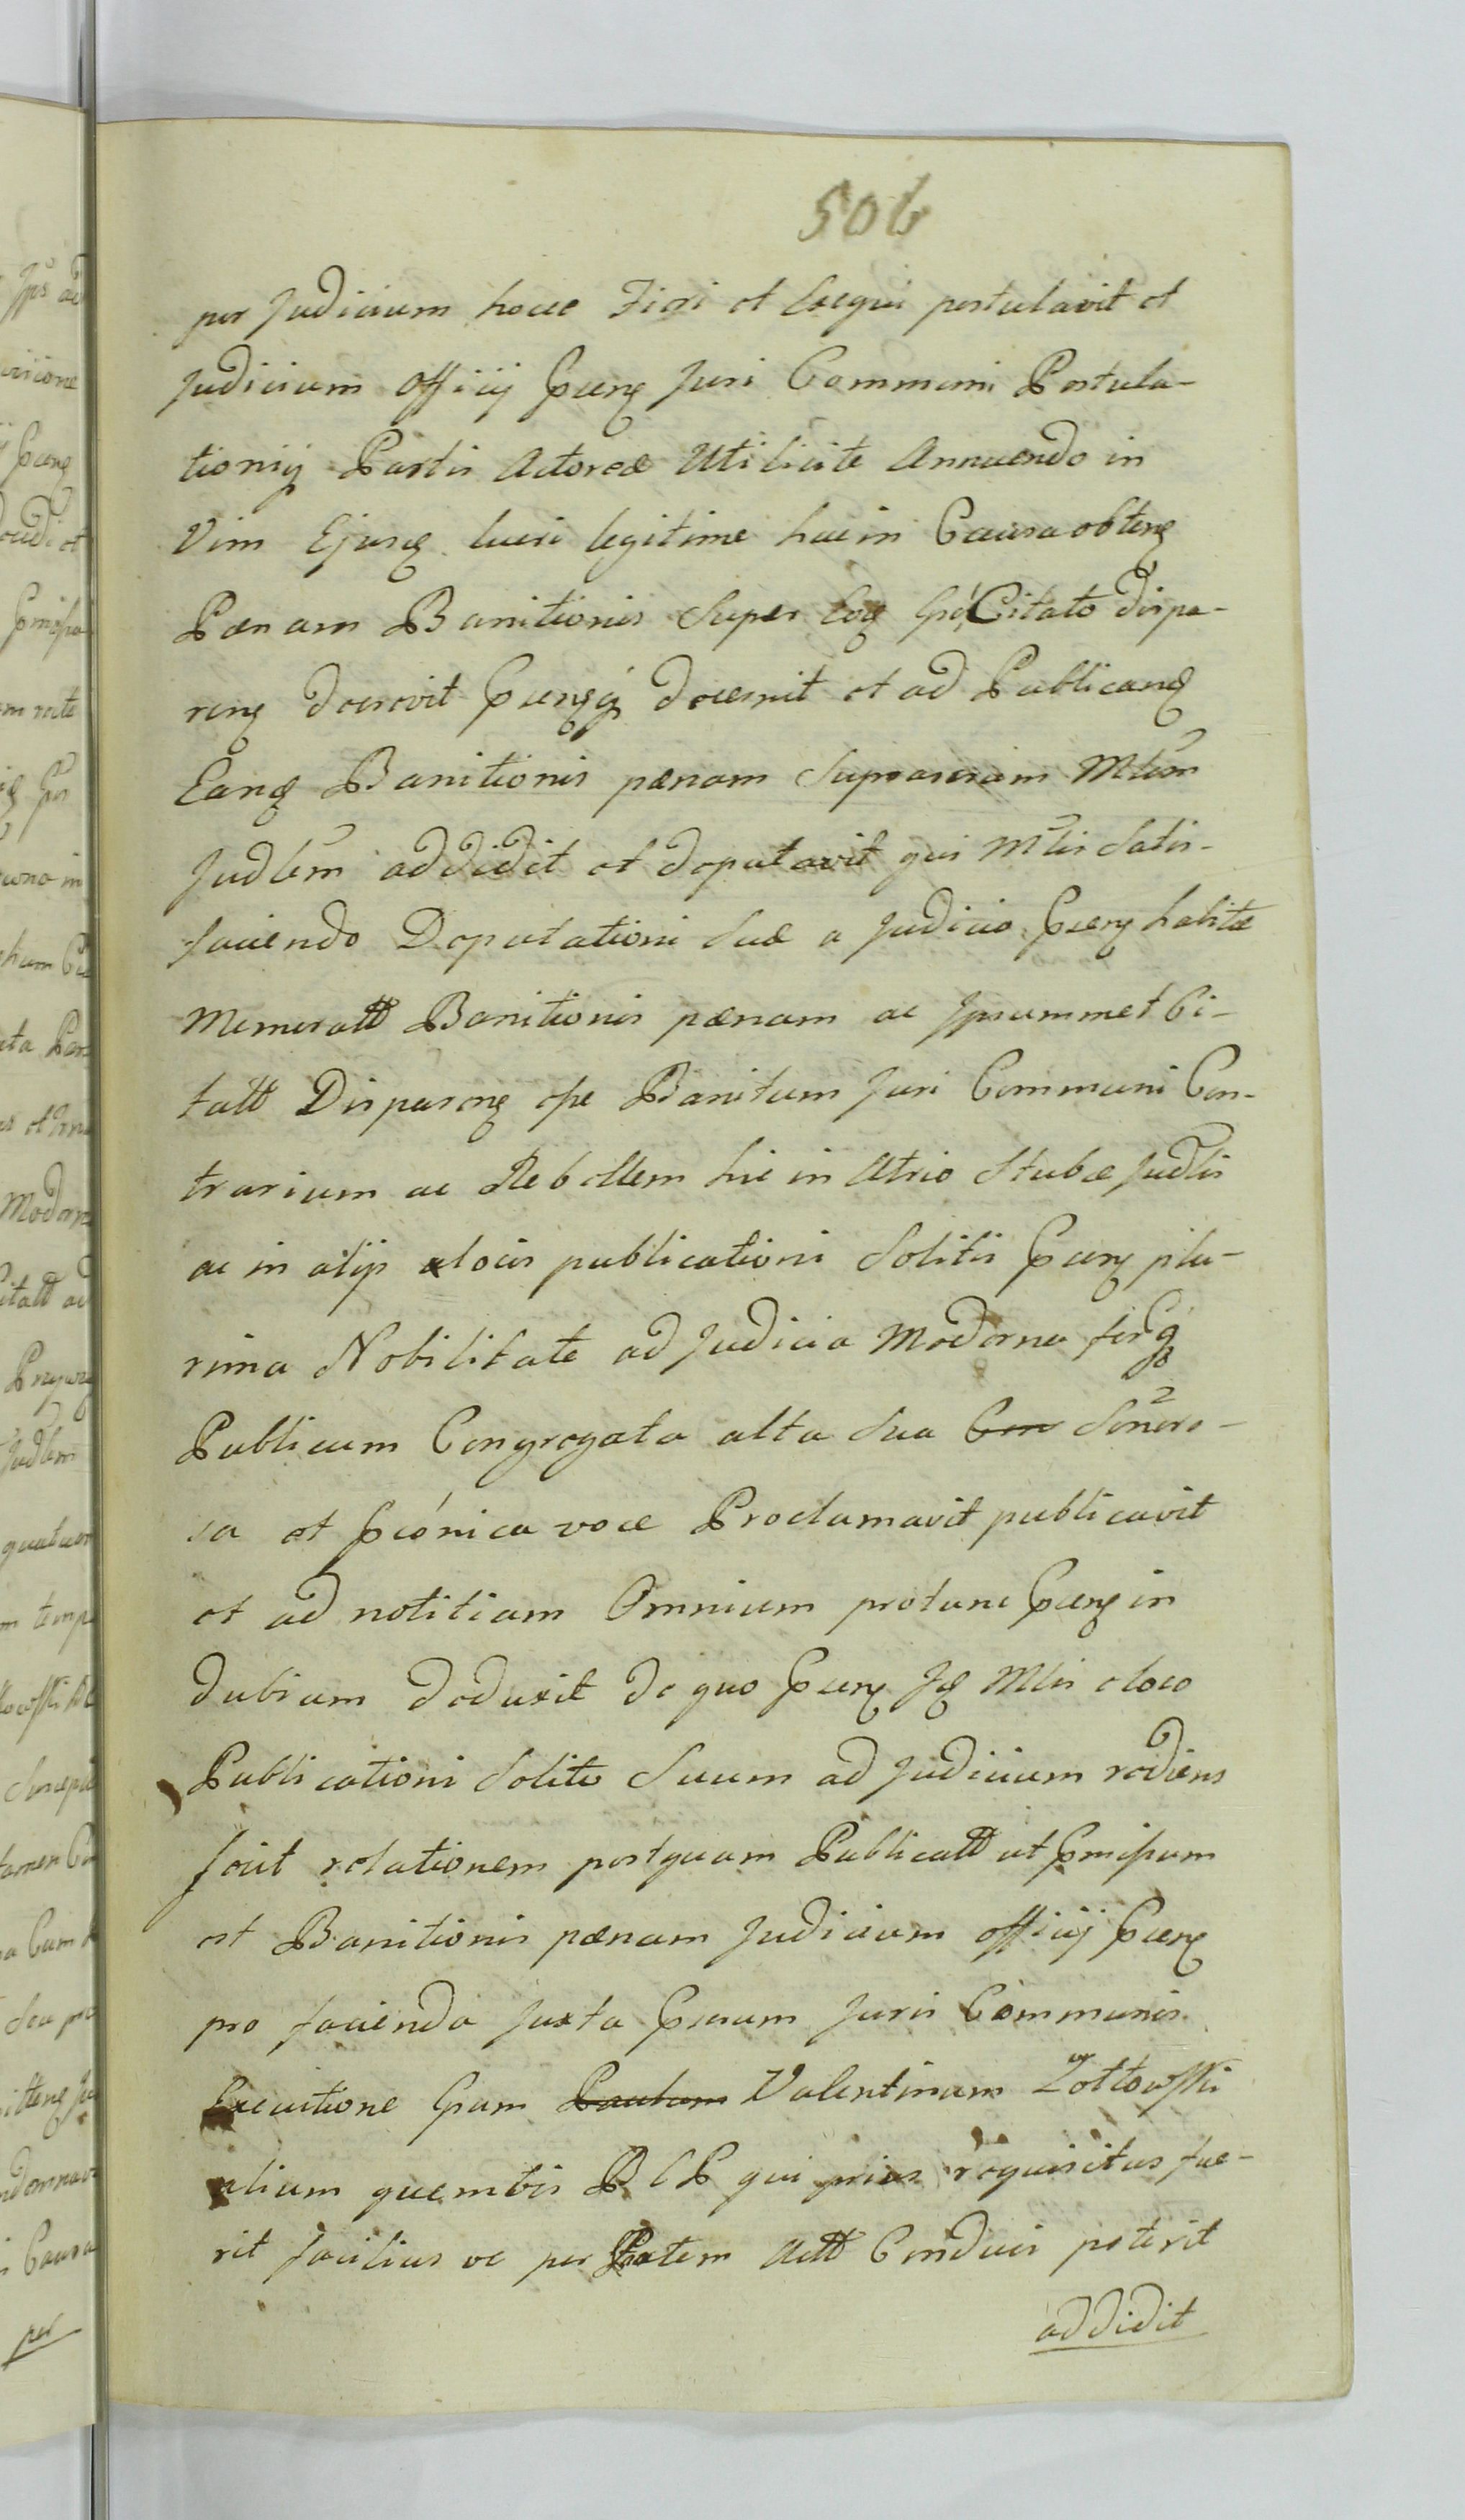 506
per Judicium hocce Fieri et Exequi postulavit et
Judicium Officij Pñens Juri Communi Postula-
tioniq Partis Actoreæ Utilicite Annuendo in
Vim Ejusd lucri legitime hacin Causa obtens
Pænam Banitionis super Eod Citato dispa-
rens decrevit decernit et ad Publicand
Eand Banitionis pænam supra Mlem
Judlem addidit et deputavit qui Mlis satis-
faciendo Deputationi suæ a Judicio Pñens habitæ
Memoratt Banitionis pænam ac Ipsummet Ci-
tatt Disparens ope Banitum Juri Communi Con-
trarium ac Rebellem hic in Atrio Stubæ Judlis
ac in alijs locis publicationi solitis Pñens plu-
rima Nobilitate ad Judicia Moderna
Publicum Congregata alta sua Con Sonoro-
sa et voce Proclamavit publicavit
et ad notitiam Omnium protunc Pñens in
dubium deduxit de quo Pñens Id Mlis e loco
Publicationi solito suum ad Judicium rediens
fecit relationem postquam Publicatt ut
est Banitionis pænam Judicium officij Pñens
pro facienda juxta Juris Communis
Executione Gsum Paulum Valentinum Zoltowski
alium quemvis P C P qui prius requisitus fue-
rit facilius ve per Partem Actt Conduci poterit
addidit